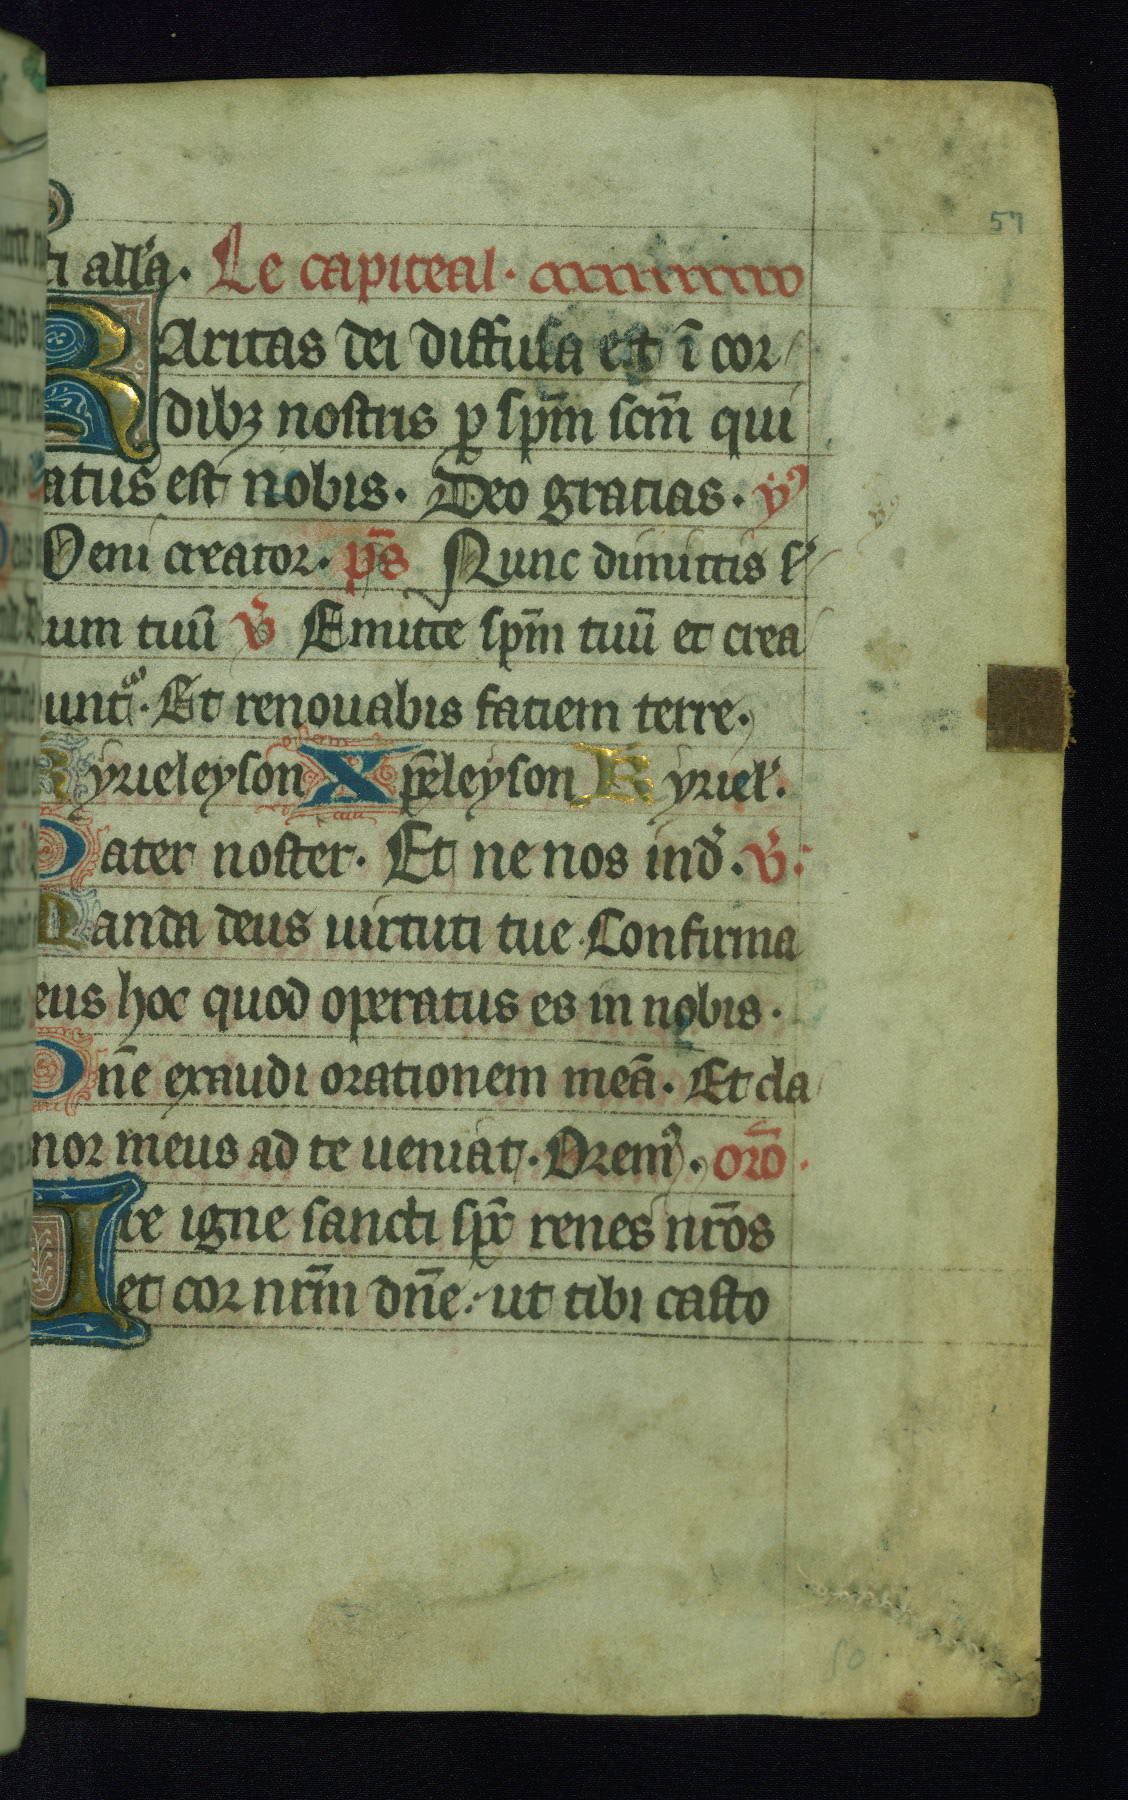 57
ti all'a. Le capiteal.
KAritas dei diffusa est ī cor
dibꝫ nostris ꝑ sp̄m sc̄m qui
atus est nobis. Deo gracias. ẏꝰ
Veni creator. ps̄ Nunc dimittis s'
uum tuū v̾ Emitte sp̄m tuū et crea
buntᷓ. Et renouabis faciem terre.
Kyrieleyson Xp̄eleyson Kyriel'.
Pater noster. Et ne nos ind'. v̾
Manda deus uirtuti tue. Confirma
eus hoc quod operatus es in nobis.
Dn̄e exaudi orationem meā. Et cla
mor meus ad te ueniat. Oremꝰ. or̄o.
Ure igne sancti sp̄c renes nr̄os
et cor nr̄m dn̄e. ut tibi casto
50